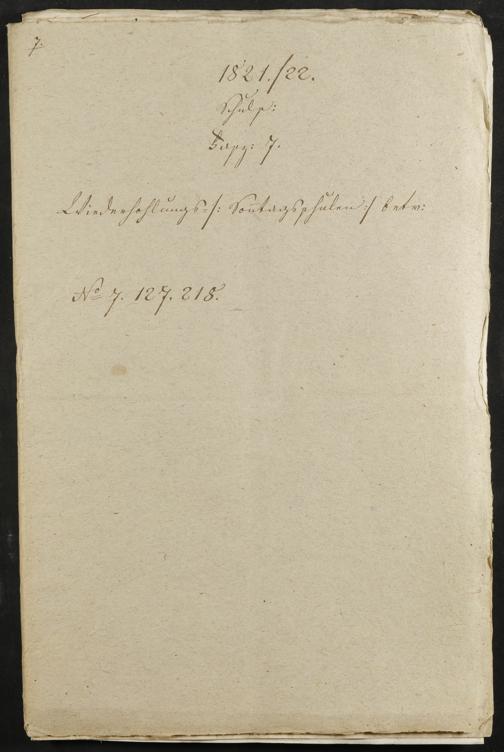 7.
1821./22.
Schulf:
Fasz: 7.
Wiederhohlungs-/: Sontagsschulen :/ betr:
No 7. 127. 218.